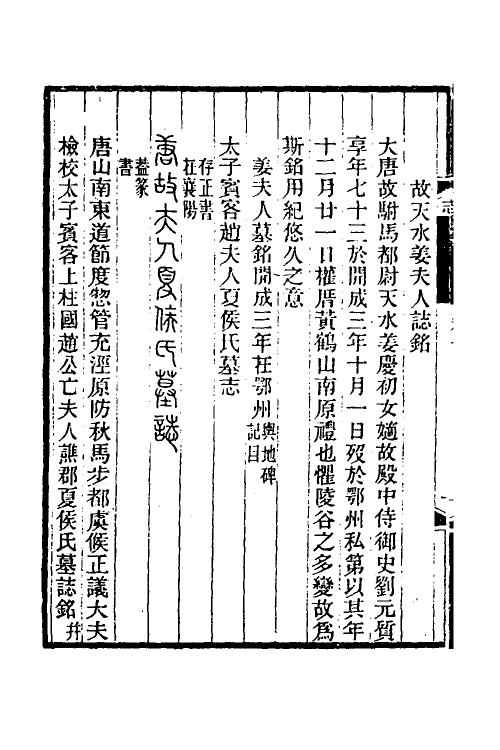 故天水姜夫人誌銘
大唐故駙馬都尉天水姜慶初女嫡故殿中侍御史劉元質
享年七十三於開成三年十月一日歿於鄂州私第以其年
十二月廿一日權厝黃鶴山南原禮也懼陵谷之多變故爲
斯銘用紀悠久之意
姜夫人墓銘開成三年在鄂州輿地碑記目
太子賓客趙夫人夏侯氏墓志
存正書在襄陽
唐故夫人夏侯氏墓誌
蓋篆書
唐山南東道節度惣管充涇原防秋馬步都虞候正議大夫
檢校太子賓客上柱國趙公亡夫人譙郡夏侯氏墓誌銘并